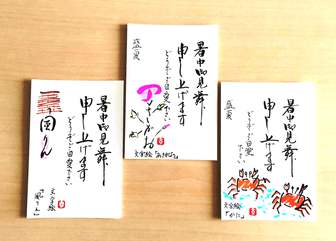 暑中お見舞
申し上げます
どうぞご自愛下さい
盛夏
アさがお
文字絵「あさがお」
暑中お見舞
申し上げます
どうぞご自愛ください
風りん
文字絵
「風りん」
暑中お見舞
申し上げます
どうぞご自愛ください
盛夏
文字絵「かに」